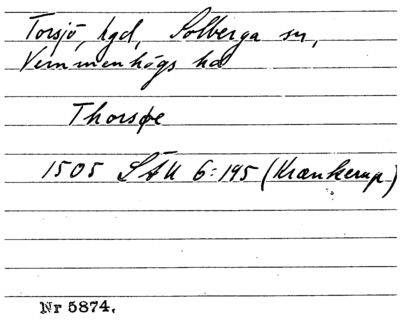 Torsjö, hgd, Solberga sn,
Vemmenhögs hd
Thorsøe
1505 SÄU 6:195 (Krænkerup)
Nr 5874.